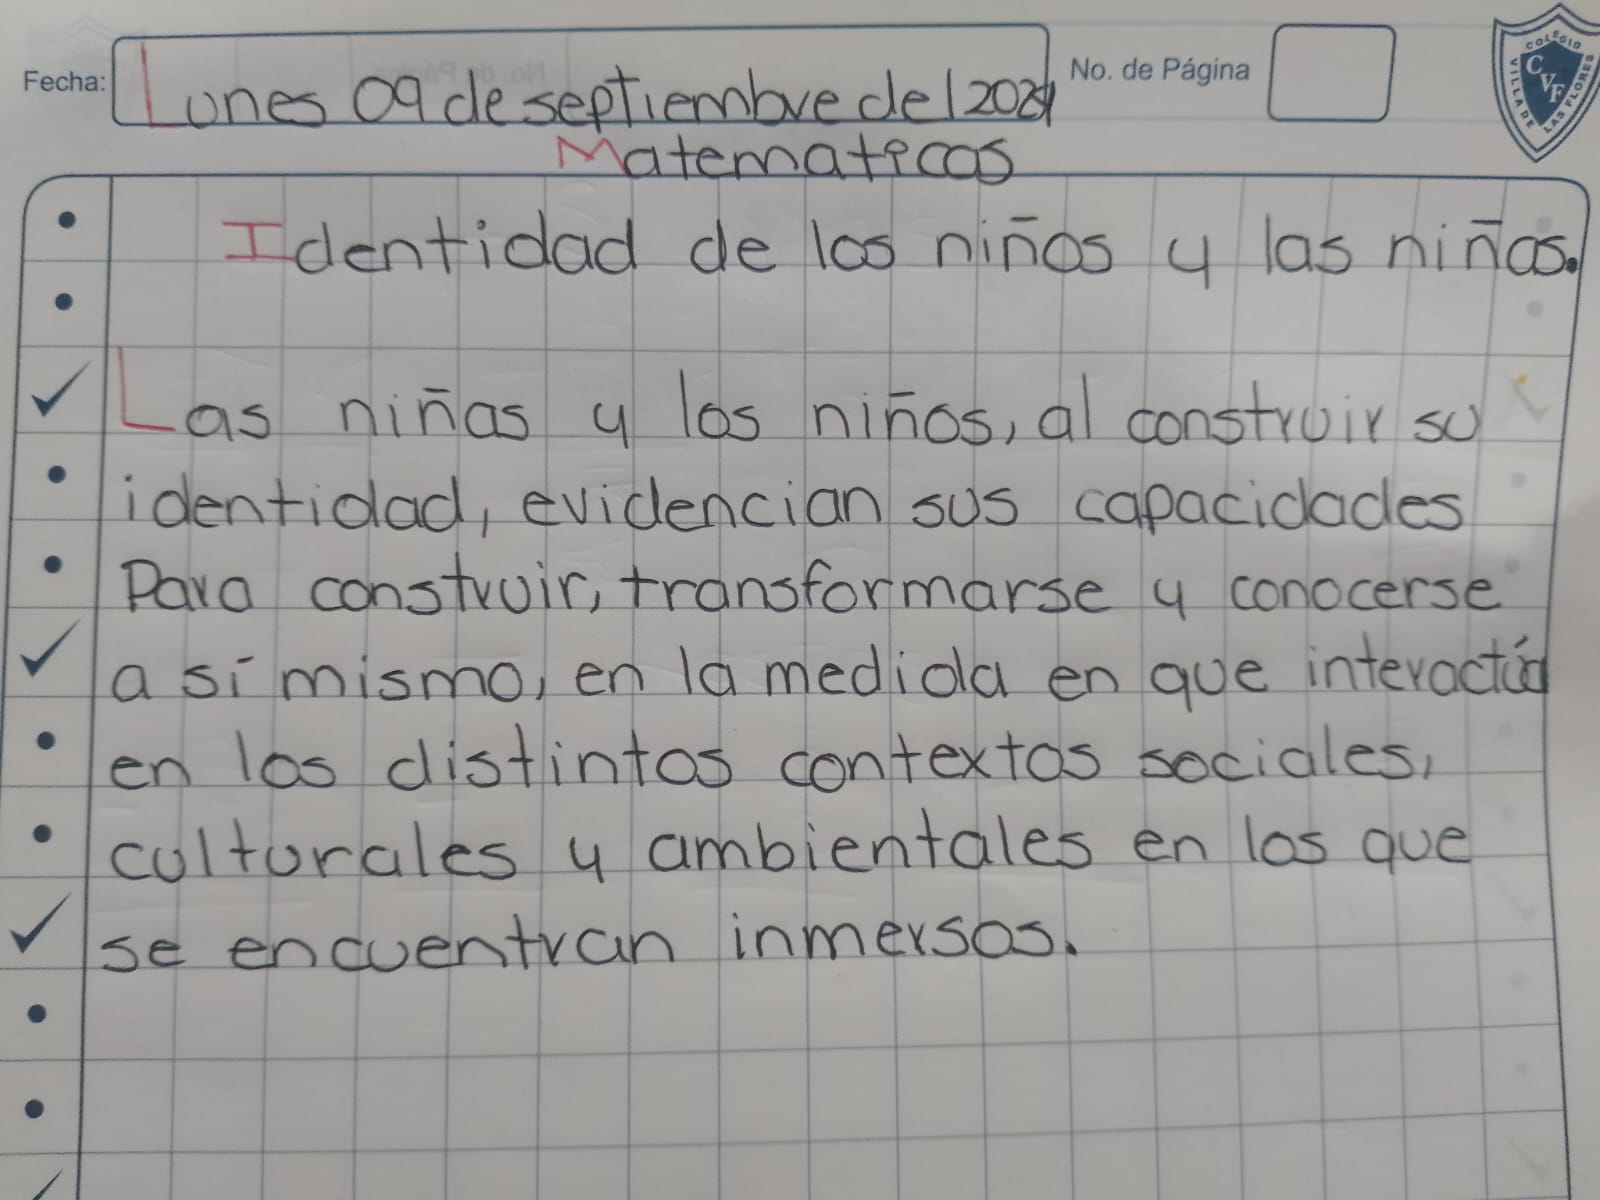 Fecha: Lunes 09 de septiembre del 2024 No. de Página
COLEGIO VILLA DE LAS FLORES CVF
Matematicas
Identidad de los niños y las niñas.
Las niñas y los niños, al construir su
identidad, evidencian sus capacidades
Para construir, transformarse y conocerse
a sí mismo, en la medida en que interactúa
en los distintos contextos sociales,
culturales y ambientales en los que
se encuentran inmersos.